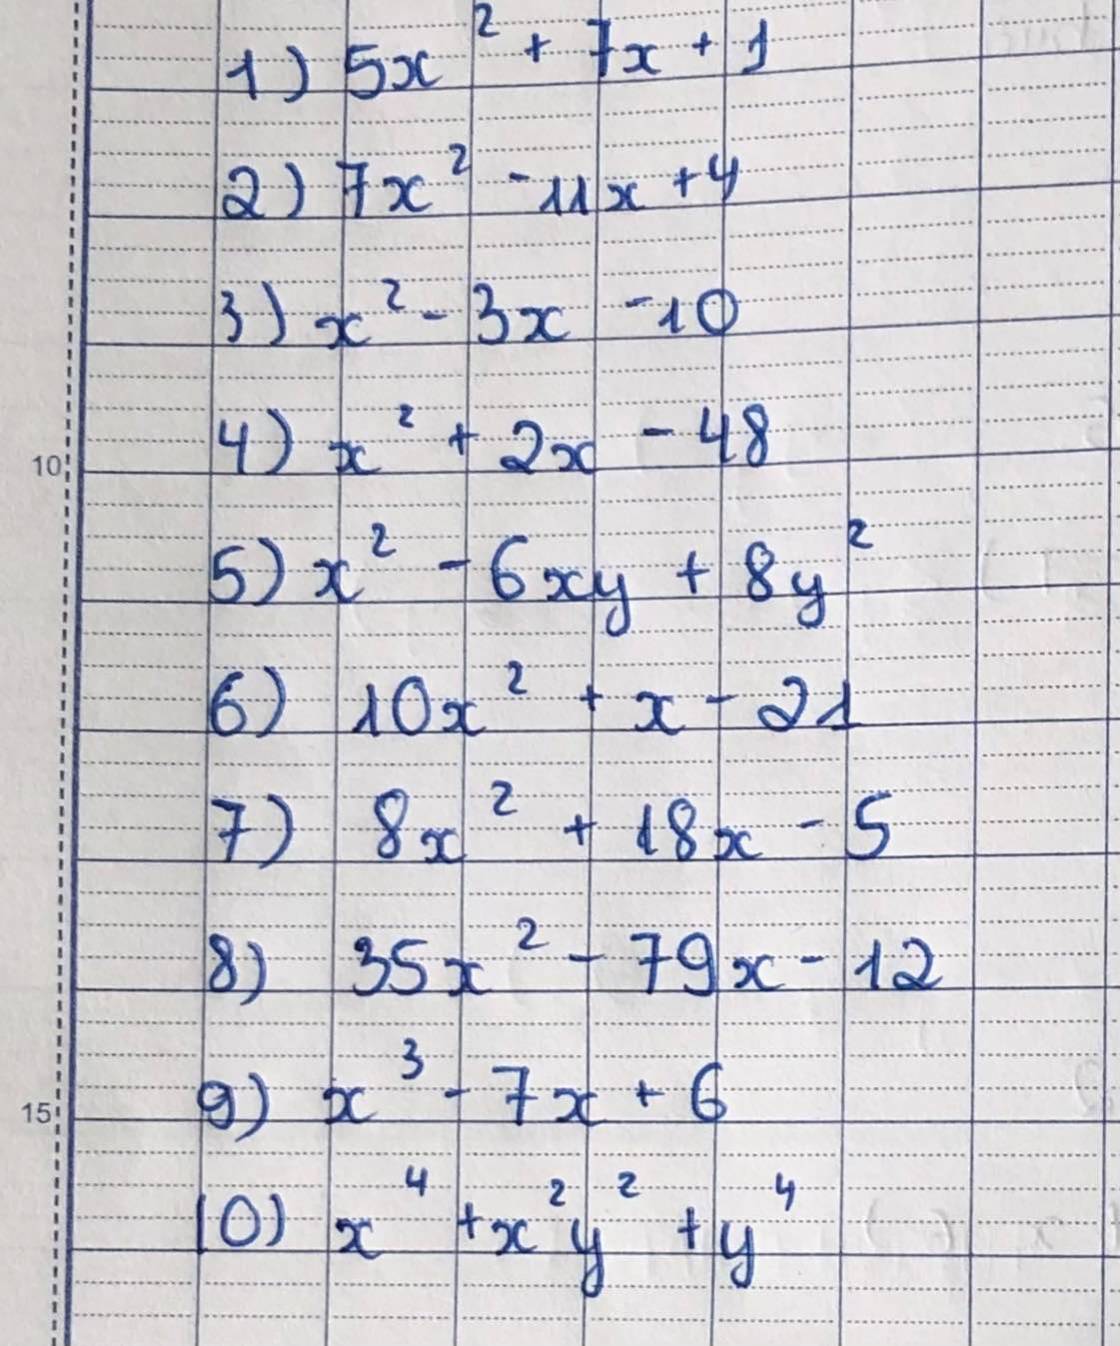 1) 5x² + 7x + 1
2) 7x² - 11x + 4
3) x² - 3x - 10
10
4) x² + 2x - 48
5) x² - 6xy + 8y²
6) 10x² + x - 21
7) 8x² + 18x - 5
8) 35x² - 79x - 12
15
9) x³ - 7x + 6
10) x⁴ + x²y² + y⁴